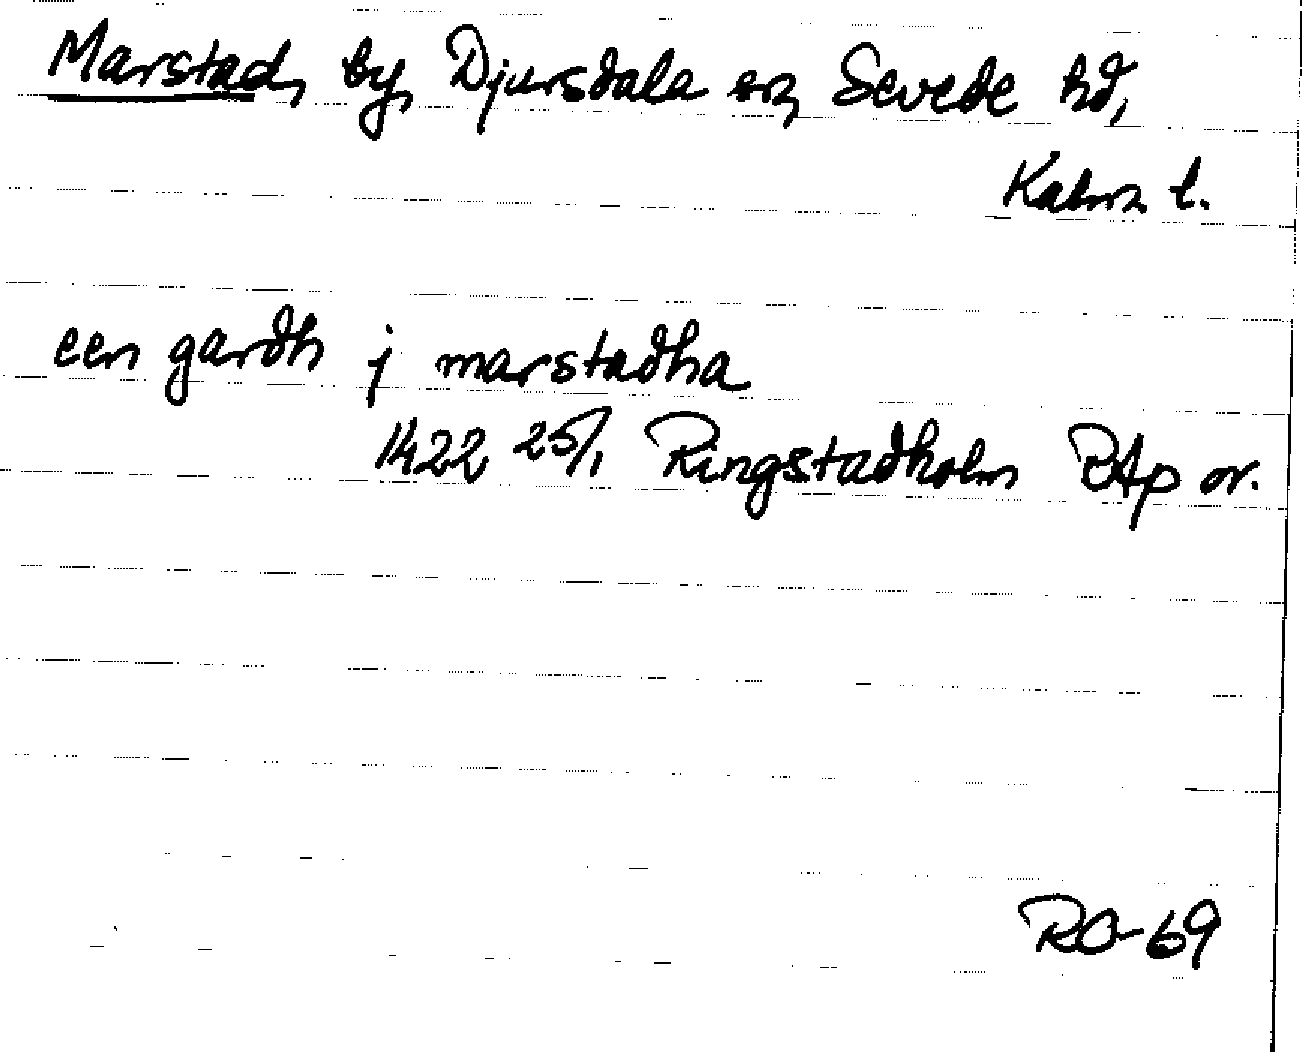 Marstad, by, Djursdala sn, Sevede hd,
Kalm l.
een gardh j marstadha
1422 25/1 Ringstadholm RAp or.
RO-69